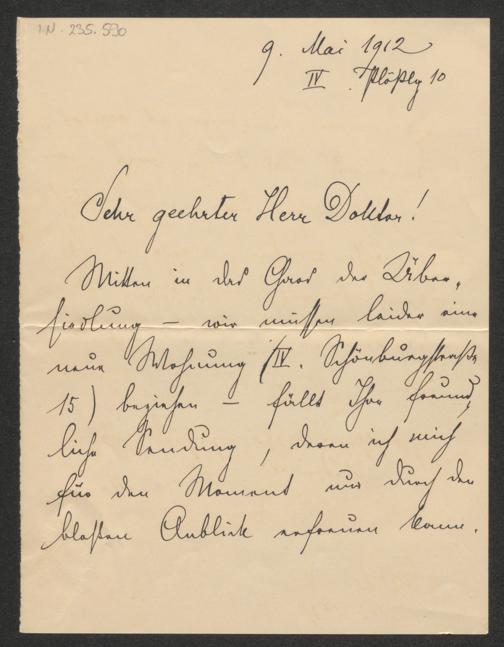 I.N. 235.590
9. Mai 1912
IV. Plößlg 10
Sehr geehrter Herr Doktor!
Mitten in das Chaos der Über-
siedlung – wir müssen leider eine
neue Wohnung (IV. Schönburgstraße
15) beziehen – fällt Ihre freund-
liche Sendung, deren ich mich
für den Moment nur durch den
bloßen Anblick erfreuen kann.